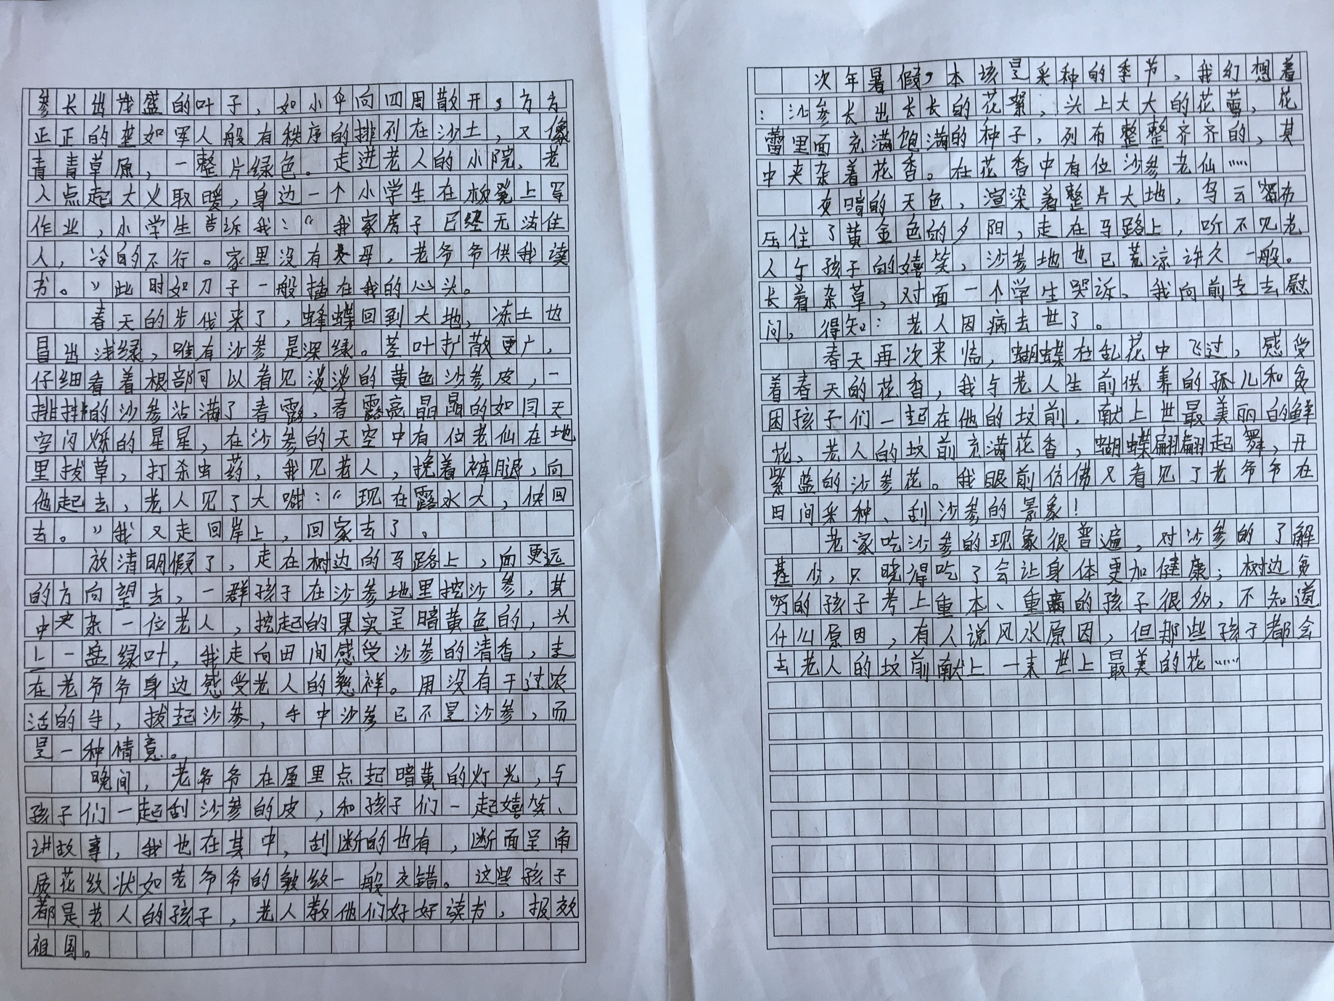 参长出茂盛的叶子，如小伞向四周散开，方方
正正的垄如军人般有秩序的排列在沙土，又像
青青草原，一整片绿色。走进老人的小院，老
人点起大火取暖，身边一个小学生在板凳上写
作业，小学生告诉我：“我家房子已经无法住
人，冷的不行。家里没有父母，老爷爷供我读
书。”此时如刀子一般插在我的心头。
春天的步伐来了，蜂蝶回到大地，冻土也
冒出浅绿，唯有沙参是深绿。茎叶扩散更广，
仔细看着根部可以看见淡淡的黄色沙参皮，一
排排的沙参沾满了春露，春露亮晶晶的如同天
空闪烁的星星，在沙参的天空中有位老仙在地
里拔草，打杀虫药，我见老人，挽着裤腿，向
他走去，老人见了大喊：“现在露水大，快回
去。”我又走回岸上，回家去了。
放清明假了，走在树边的马路上，向更远
的方向望去，一群孩子在沙参地里挖沙参，其
中夹杂一位老人，挖起的果实呈暗黄色的，头
上一盘绿叶，我走向田间感受沙参的清香，走
在老爷爷身边感受老人的慈祥。用没有干过农
活的手，拔起沙参，手中沙参已不是沙参，而
是一种情意。
晚间，老爷爷在屋里点起暗黄的灯光，与
孩子们一起刮沙参的皮，和孩子们一起嬉笑、
讲故事，我也在其中，刮断的也有，断面呈角
质花纹状如老爷爷的皱纹一般交错。这些孩子
都是老人的孩子，老人教他们好好读书，报效
祖国。
次年暑假，本该是采种的季节，我幻想着
：沙参长出长长的花絮，头上大大的花蕾，花
蕾里面充满饱满的种子，列有整整齐齐的，其
中夹杂着花香。在花香中有位沙参老仙……
灰暗的天色，渲染着整片大地，乌云密布
压住了黄金色的夕阳，走在马路上，听不见老
人与孩子的嬉笑，沙参地也已荒凉许久一般。
长着杂草，对面一个学生哭诉，我向前走去慰
问，得知：老人因病去世了。
春天再次来临，蝴蝶在乱花中飞过，感受
着春天的花香，我与老人生前供养的孤儿和贫
困孩子们一起在他的坟前，献上世最美丽的鲜
花，老人的坟前充满花香，蝴蝶翩翩起舞，开
紫蓝的沙参花。我眼前仿佛又看见了老爷爷在
田间采种、刮沙参的景象！
老家吃沙参的现象很普遍，对沙参的了解
甚少，只晓得吃了会让身体更加健康；树边贫
穷的孩子考上重本、重高的孩子很多，不知道
什么原因，有人说风水原因，但那些孩子都会
去老人的坟前献上一束世上最美的花……